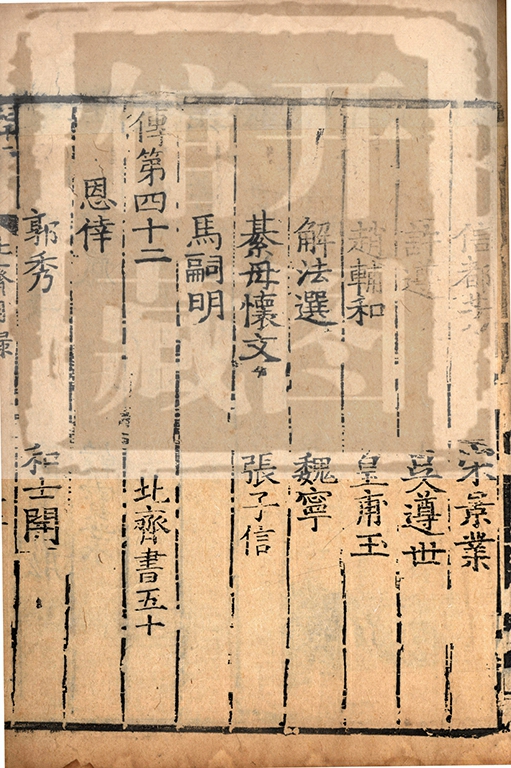 信都芳 宋景業
許遵 吳遵世
趙輔和 皇甫玉
解法選 魏寧
綦母懷文 張子信
馬嗣明
傳第四十二 北齊書五十
恩倖
郭秀 和士開